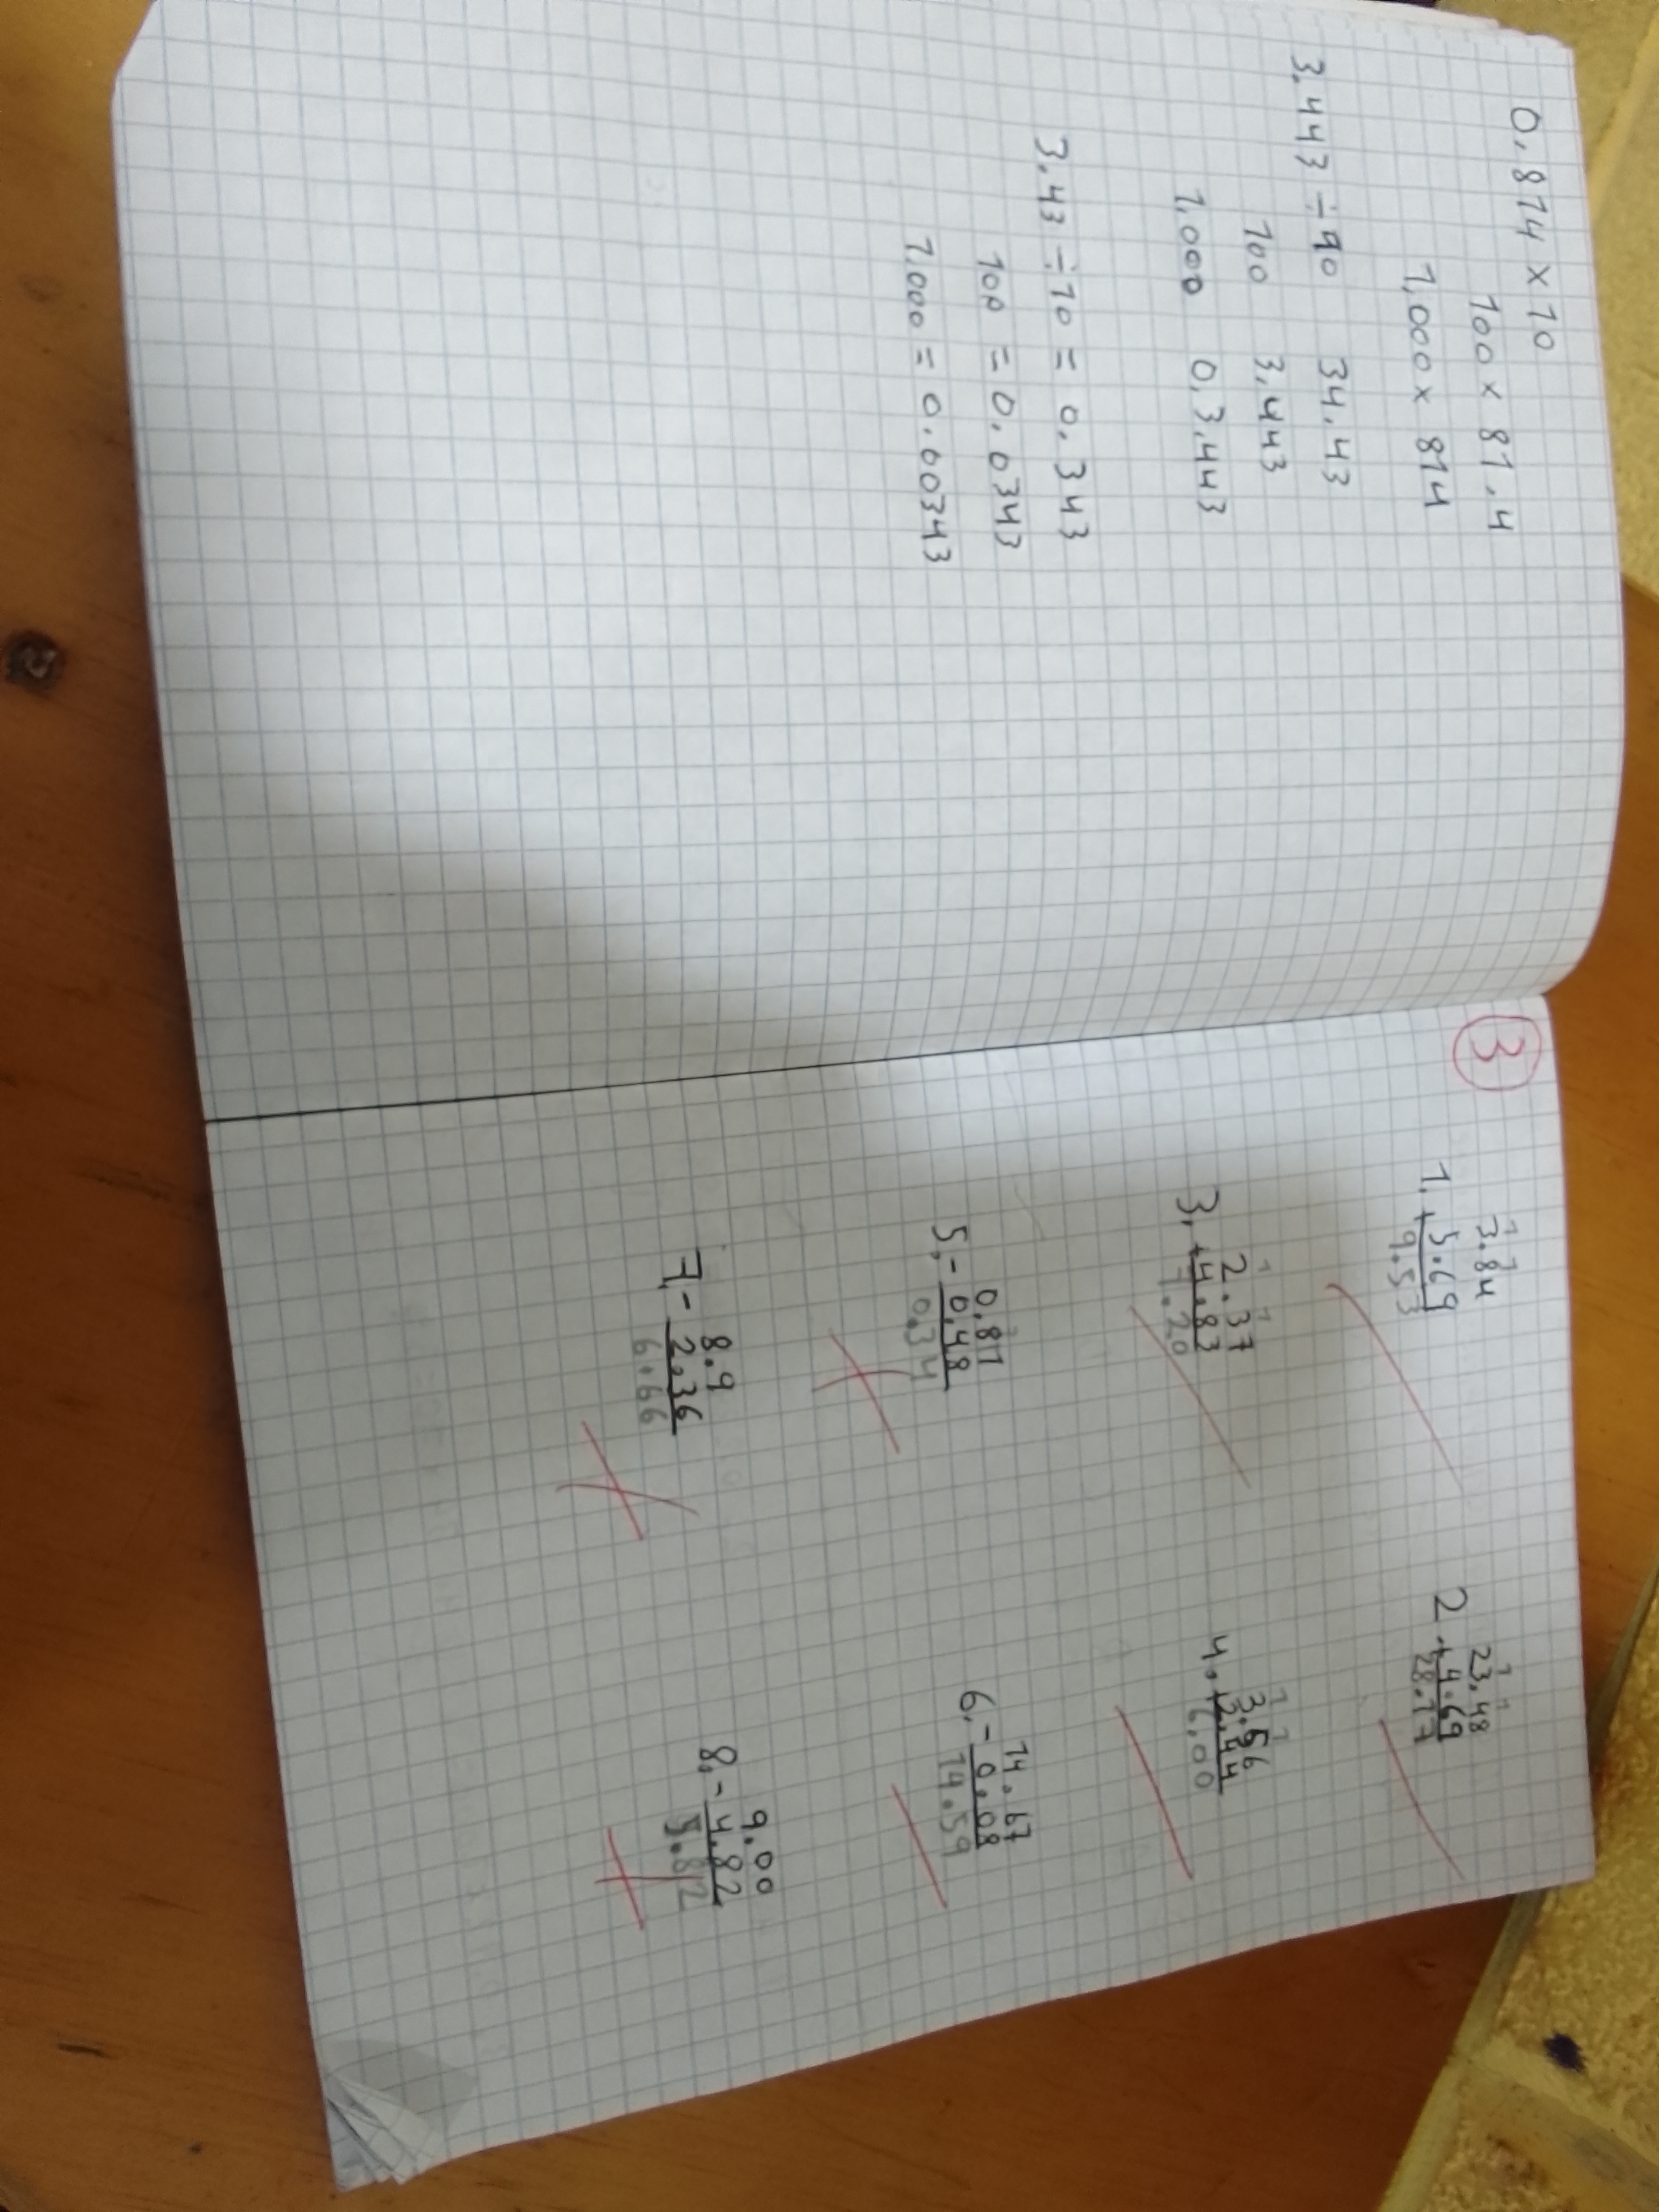 0.814 × 10
100 × 81.4
1,000 × 814
3.443 ÷ 10 34.43
100 3.443
1.000 0.3.443
3.43 ÷ 10 = 0.343
100 = 0.0343
1.000 = 0.00343
3
1 1
3.84
1. + 5.69
9.53
1 1
23.48
2 + 4.69
28.17
1 1
2.37
3. + 4.83
7.20
1 1
3.56
4. + 2.44
6.00
0.81
5. - 0.48
0.34
14.67
6. - 0.08
14.59
8.9
7. - 2.36
6.66
9.00
8. - 4.82